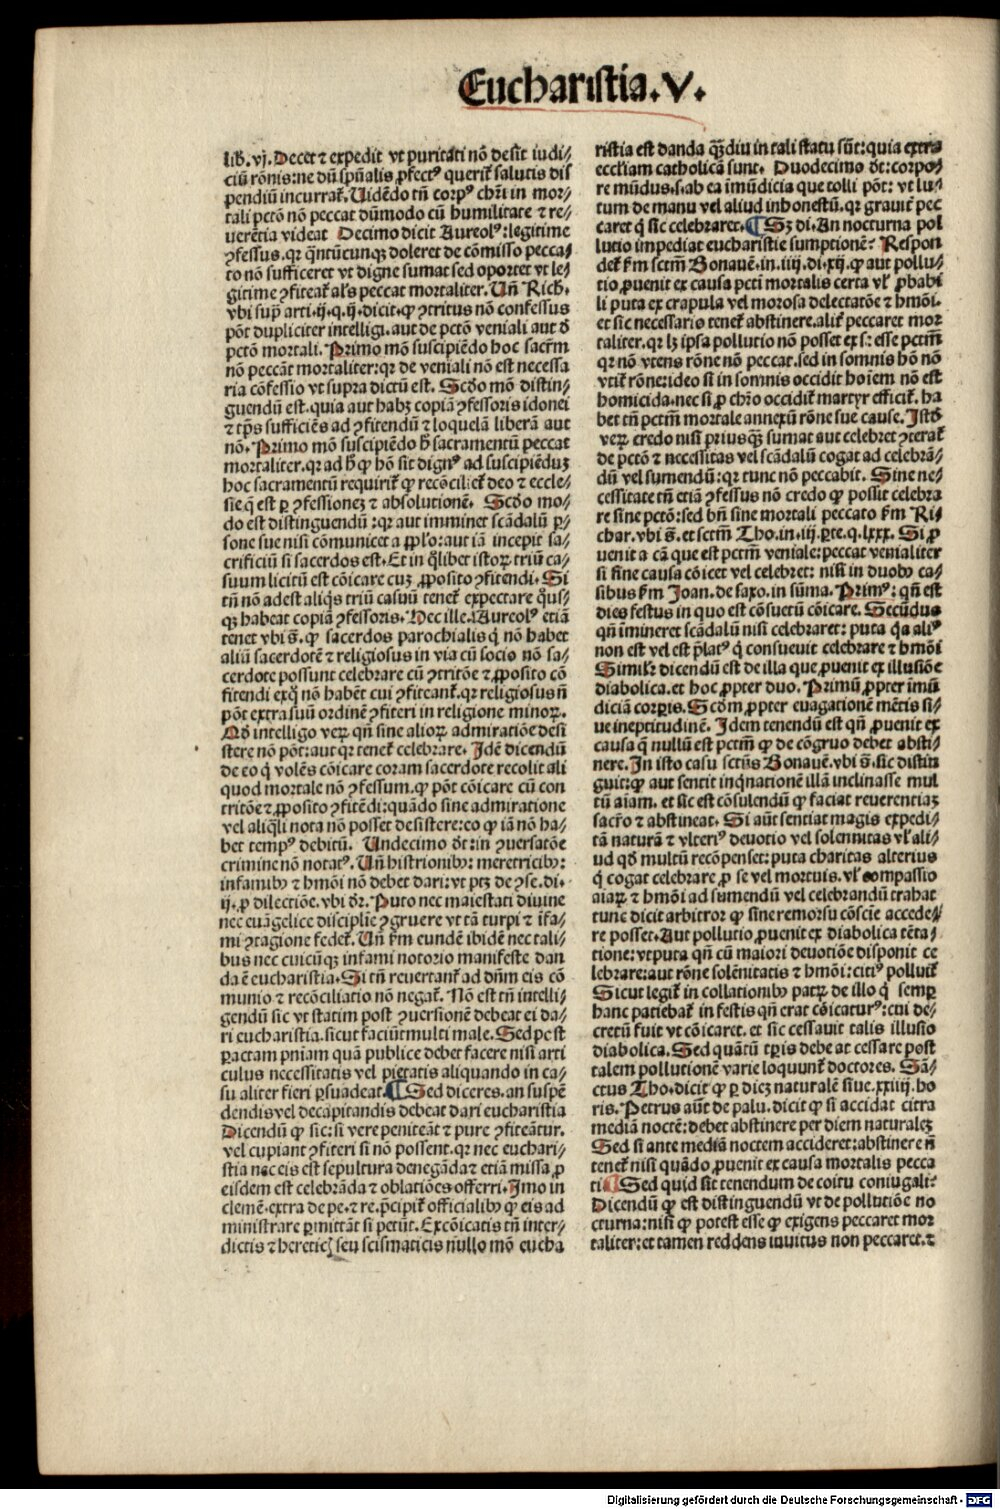 Eucharistia.V.
lib̄. vj. Decet ⁊ expedit vt puritati nō desit iudi⸗
ciū rōnis: ne dū sp̄ualis ꝓfect⁹ querit̄ salutis dis
pendiū incurrat̄. Uidēdo tn̄ corp⁹ chr̄i in mor⸗
tali pctō nō peccat dūmodo cū humilitate ⁊ re⸗
uerētia videat Decimo dicit Aureol⁹: legitime
ꝯfessus. qr qn̄tūcunqꝫ doleret de cōmisso pecca⸗
to nō sufficeret vt digne sumat sed oportet vt le⸗
gitime ꝯfiteat̄ al̄s peccat mortaliter. Un̄ Rich.
vbi sup̄ arti. ij. q. ij. dicit. ꝙ ꝯtritus nō confessus
pōt dupliciter intelligi. aut de pctō veniali aut d̄
pctō mortali. Primo mō suscipiēdo hoc sacr̄m
nō peccāt mortaliter: qr de veniali nō est necessa
ria cōfessio vt supra dictū est. Scdo mō distin⸗
guendū est. quia aut habꝫ copiā ꝯfessoris idonei
⁊ tp̄s sufficiēs ad ꝯfitendū ⁊ loquelā liberā aut
nō. Primo mō suscipiēdo h̄ sacramentū peccat
mortaliter. qr ad h̄ ꝙ hō sit dign⁹ ad suscipiēduꝫ
hoc sacramentū requirit̄ ꝙ recōciliet̄ deo ⁊ eccle⸗
sie. q̄ est ꝑ ꝯfessioneꝫ ⁊ absolutionē. Scdo mo⸗
do est distinguendū: qr aut imminet scādalū ꝑ⸗
sone sue nisi cōmunicet a ꝓp̄lo: aut iā incepit sa⸗
crificiū si sacerdos est. Et in q̄libet istoꝝ triū ca⸗
suum licitū est cōicare cuꝫ ꝓposito ꝯfitendi. Si
tn̄ nō adest aliq̄s triū casuū tenet̄ expectare q̄us⸗
qꝫ habeat copiā ꝯfessoris. Nec ille. Aureol⁹ etiā
tenet vbi s̄. ꝙ sacerdos parochialis q̄ nō habet
aliū sacerdotē ⁊ religiosus in via cū socio nō sa⸗
cerdote possunt celebrare cū ꝯtritōe ⁊ ꝓposito cō
fitendi exq̄ nō habēt cui ꝯfiteant̄. qr religiosus n̄
pōt extra suū ordinē ꝯfiteri in religione minoꝝ.
Qd̄ intelligo veꝝ qn̄ sine alioꝝ admiratiōe desi
stere nō pōt: aut qr tenet̄ celebrare. Idē dicendū
de eo q̄ volēs cōicare coram sacerdote recolit ali
quod mortale nō ꝯfessum. ꝙ pōt cōicare cū con
tritōe ⁊ ꝓposito ꝯfitēdi: quādo sine admiratione
vel aliq̄li nota nō posset desistere: eo ꝙ iā nō ha⸗
bet temp⁹ debitū. Undecimo dr̄: in ꝯuersatōe
crimine nō notat⁹. Un̄ histrionibꝰ: meretricibꝰ:
infamibꝰ ⁊ hmōi nō debet dari: vt ptꝫ de ꝯse. di.
ij. ꝓ dilectiōe. vbi dr̄. Puto nec maiestati diuine
nec euāgelice disciplīe ꝯgruere vt tā turpi ⁊ īfa⸗
mi ꝯtagione fedet̄. Un̄ ẜm eundē ibidē nec tali⸗
bus nec cuicūqꝫ infami notorio manifeste dan
da ē eucharistia. Si tn̄ reuertant̄ ad dn̄m eis cō
munio ⁊ recōciliatio nō negat̄. Nō est tn̄ intelli⸗
gendū sic vt statim post ꝯuersionē debeat ei da⸗
ri eucharistia. sicut faciūt multi male. Sed post
ꝑactam pniam quā publice debet facere nisi arti
culus necessitatis vel pietatis aliquando in ca⸗
su aliter fieri ꝑsuadeat. ¶ Sed diceres. an suspē
dendis vel decapitandis debeat dari eucharistia
Dicendū ꝙ sic: si vere peniteāt ⁊ pure ꝯfiteātur.
vel cupiant ꝯfiteri si nō possent. qr nec euchari⸗
stia nec eis est sepultura denegāda ⁊ etiā missa ꝓ
eisdem est celebrāda ⁊ oblatiōes offerri. Imo in
clemē. extra de pe. ⁊ re. p̄cipit̄ officialibꝰ ꝙ eis ad
ministrare ꝑmittāt si petūt. Excōicatis tn̄ inter⸗
dictis ⁊ hereticꝭ seu scismaticis nullo mō eucha
ristia est danda qꝫdiu in tali statu sūt: quia extra
eccliam catholicā sunt. Duodecimo dr̄: corpo⸗
re mūdus. s. ab ea imūdicia que tolli pōt: vt lu⸗
tum de manu vel aliud inhonestū. qr grauit̄ pec
caret q̄ sic celebraret. ¶ Sꝫ di. An nocturna pol
lutio impediat eucharistie sumptionē? Respon
det̄ ẜm sctm̄ Bonauē. in. iiij. di. xij. ꝙ aut pollu⸗
tio ꝓuenit ex causa pcti mortalis certa vl̄ ꝓbabi
li puta ex crapula vel morosa delectatōe ⁊ hmōi.
et sic necessario tenet̄ abstinere. alit̄ peccaret mor
taliter. qr lꝫ ipsa pollutio nō posset ex s: esse pctm̄
qr nō vtens rōne nō peccat. sed in somnis hō nō
vtit̄ rōne: ideo si in somnis occidit hoīem nō est
homicida. nec si ꝓ chro occidit̄ martyr efficit̄. ha
bet tn̄ pctm̄ mortale annexū rōne sue cause. Istd̄
veꝝ credo nisi priusqꝫ sumat aut celebret ꝯterat̄
de pctō ⁊ necessitas vel scādalū cogat ad celebrā⸗
dū vel sumendū: qr tunc nō peccabit. Sine ne⸗
cessitate tn̄ etiā ꝯfessus nō credo ꝙ possit celebra
re sine pctō: sed bn̄ sine mortali peccato ẜm Ri⸗
char. vbi s̄. et sctm̄ Tho. in. iij. ꝑte. q. lxxx. Si ꝓ
uenit a cā que est pctm̄ veniale: peccat venialiter
si sine causa cōicet vel celebret: nisi in duobꝰ ca⸗
sibus ẜm Joan. de saxo. in sūma. Prim⁹: qn̄ est
dies festus in quo est cōsuetū cōicare. Secūdus
qn̄ imineret scādalū nisi celebraret: puta q̄a ali⁹
non est vel est p̄lat⁹ q̄ consueuit celebrare ⁊ hmōi
Simil̄r dicendū est de illa que ꝓuenit ex illusiōe
diabolica. et hoc ꝓpter duo. Primū ꝓpter imū
diciā corꝑis. Scdm ꝓpter euagationē mētis si⸗
ue ineptitudinē. Idem tenendū est qn̄ ꝓuenit ex
causa q̄ nullū est pctm̄ ꝙ de cōgruo debet absti⸗
nere. In isto casu sctūs Bonauē. vbi s̄. sic distin
guit: ꝙ aut sentit inq̄nationē illā inclinasse mul
tū aīam. et sic est cōsulendū ꝙ faciat reuerentiaꝫ
sacr̄o ⁊ abstineat. Si aūt sentiat magis expedi⸗
tā naturā ⁊ vlteri⁹ deuotio vel solennitas vl̄ ali⸗
ud qd̄ multū recōpenset: puta charitas alterius
q̄ cogat celebrare ꝓ se vel mortuis. vl̄ compassio
aīaꝝ ⁊ hmōi ad sumendū vel celebrandū trahat
tunc dicit arbitror ꝙ sine remorsu cōscīe accede⸗
re posset. Aut pollutio ꝓuenit ex diabolica tēta⸗
tione: vtputa qn̄ cū maiori deuotiōe disponit ce
lebrare: aut rōne solēnitatis ⁊ hmōi: citi⁹ polluit̄
Sicut legit̄ in collationibꝰ patꝝ de illo q̄ semꝑ
hanc patiebat̄ in festis qn̄ erat cōicatur⁹: cui de⸗
cretū fuit vt cōicaret. et sic cessauit talis illusio
diabolica. Sed quātū tꝑis debeat cessare post
talem pollutionē varie loquunt̄ doctores. Sā⸗
ctus Tho. dicit ꝙ ꝑ dieꝫ naturalē siue. xxiiij. ho
ris. Petrus aūt de palu. dicit ꝙ si accidat citra
mediā noctē: debet abstinere per diem naturaleꝫ
Sed si ante mediā noctem accideret: abstinere n̄
tenet̄ nisi quādo ꝓuenit ex causa mortalis pecca
ti. ¶ Sed quid sit tenendum de coitu coniugali?
Dicendū ꝙ est distinguendū vt de pollutiōe no
cturna: nisi ꝙ potest esse ꝙ exigens peccaret mor
taliter: et tamen reddens inuitus non peccaret. ⁊
Digitalisierung gefördert durch die Deutsche Forschungsgemeinschaft - DFG